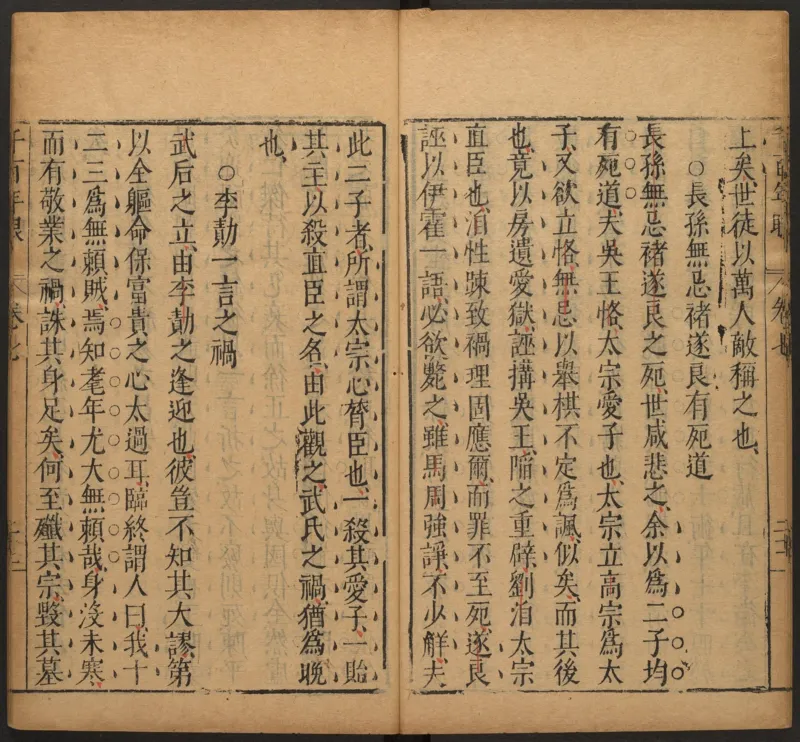 上矣世徒以萬人敵稱之也
○長孫無忌褚遂良有死道
長孫無忌褚遂良之死世咸悲之余以爲二子均
有死道夫吳王恪太宗愛子也太宗立高宗爲太
子又欲立恪無忌以舉棋不定爲諷似矣而其後
也竟以房遺愛獄誣搆吳王陷之重辟劉洎太宗
直臣也洎性踈致禍理固應爾而罪不至死遂良
誣以伊霍一語必欲斃之雖馬周強諍不少解夫
此二子者所謂太宗心膂臣也一殺其愛子一貽
其主以殺直臣之名由此觀之武氏之禍猶爲晚
也
○李勣一言之禍
武后之立由李勣之逢迎也彼豈不知其大謬第
以全軀命保富貴之心太過耳臨終謂人曰我十
二三爲無賴賊焉知耄年尤大無賴哉身沒未寒
而有敬業之禍誅其身足矣何至殲其宗毀其墓
千百年眼
卷七